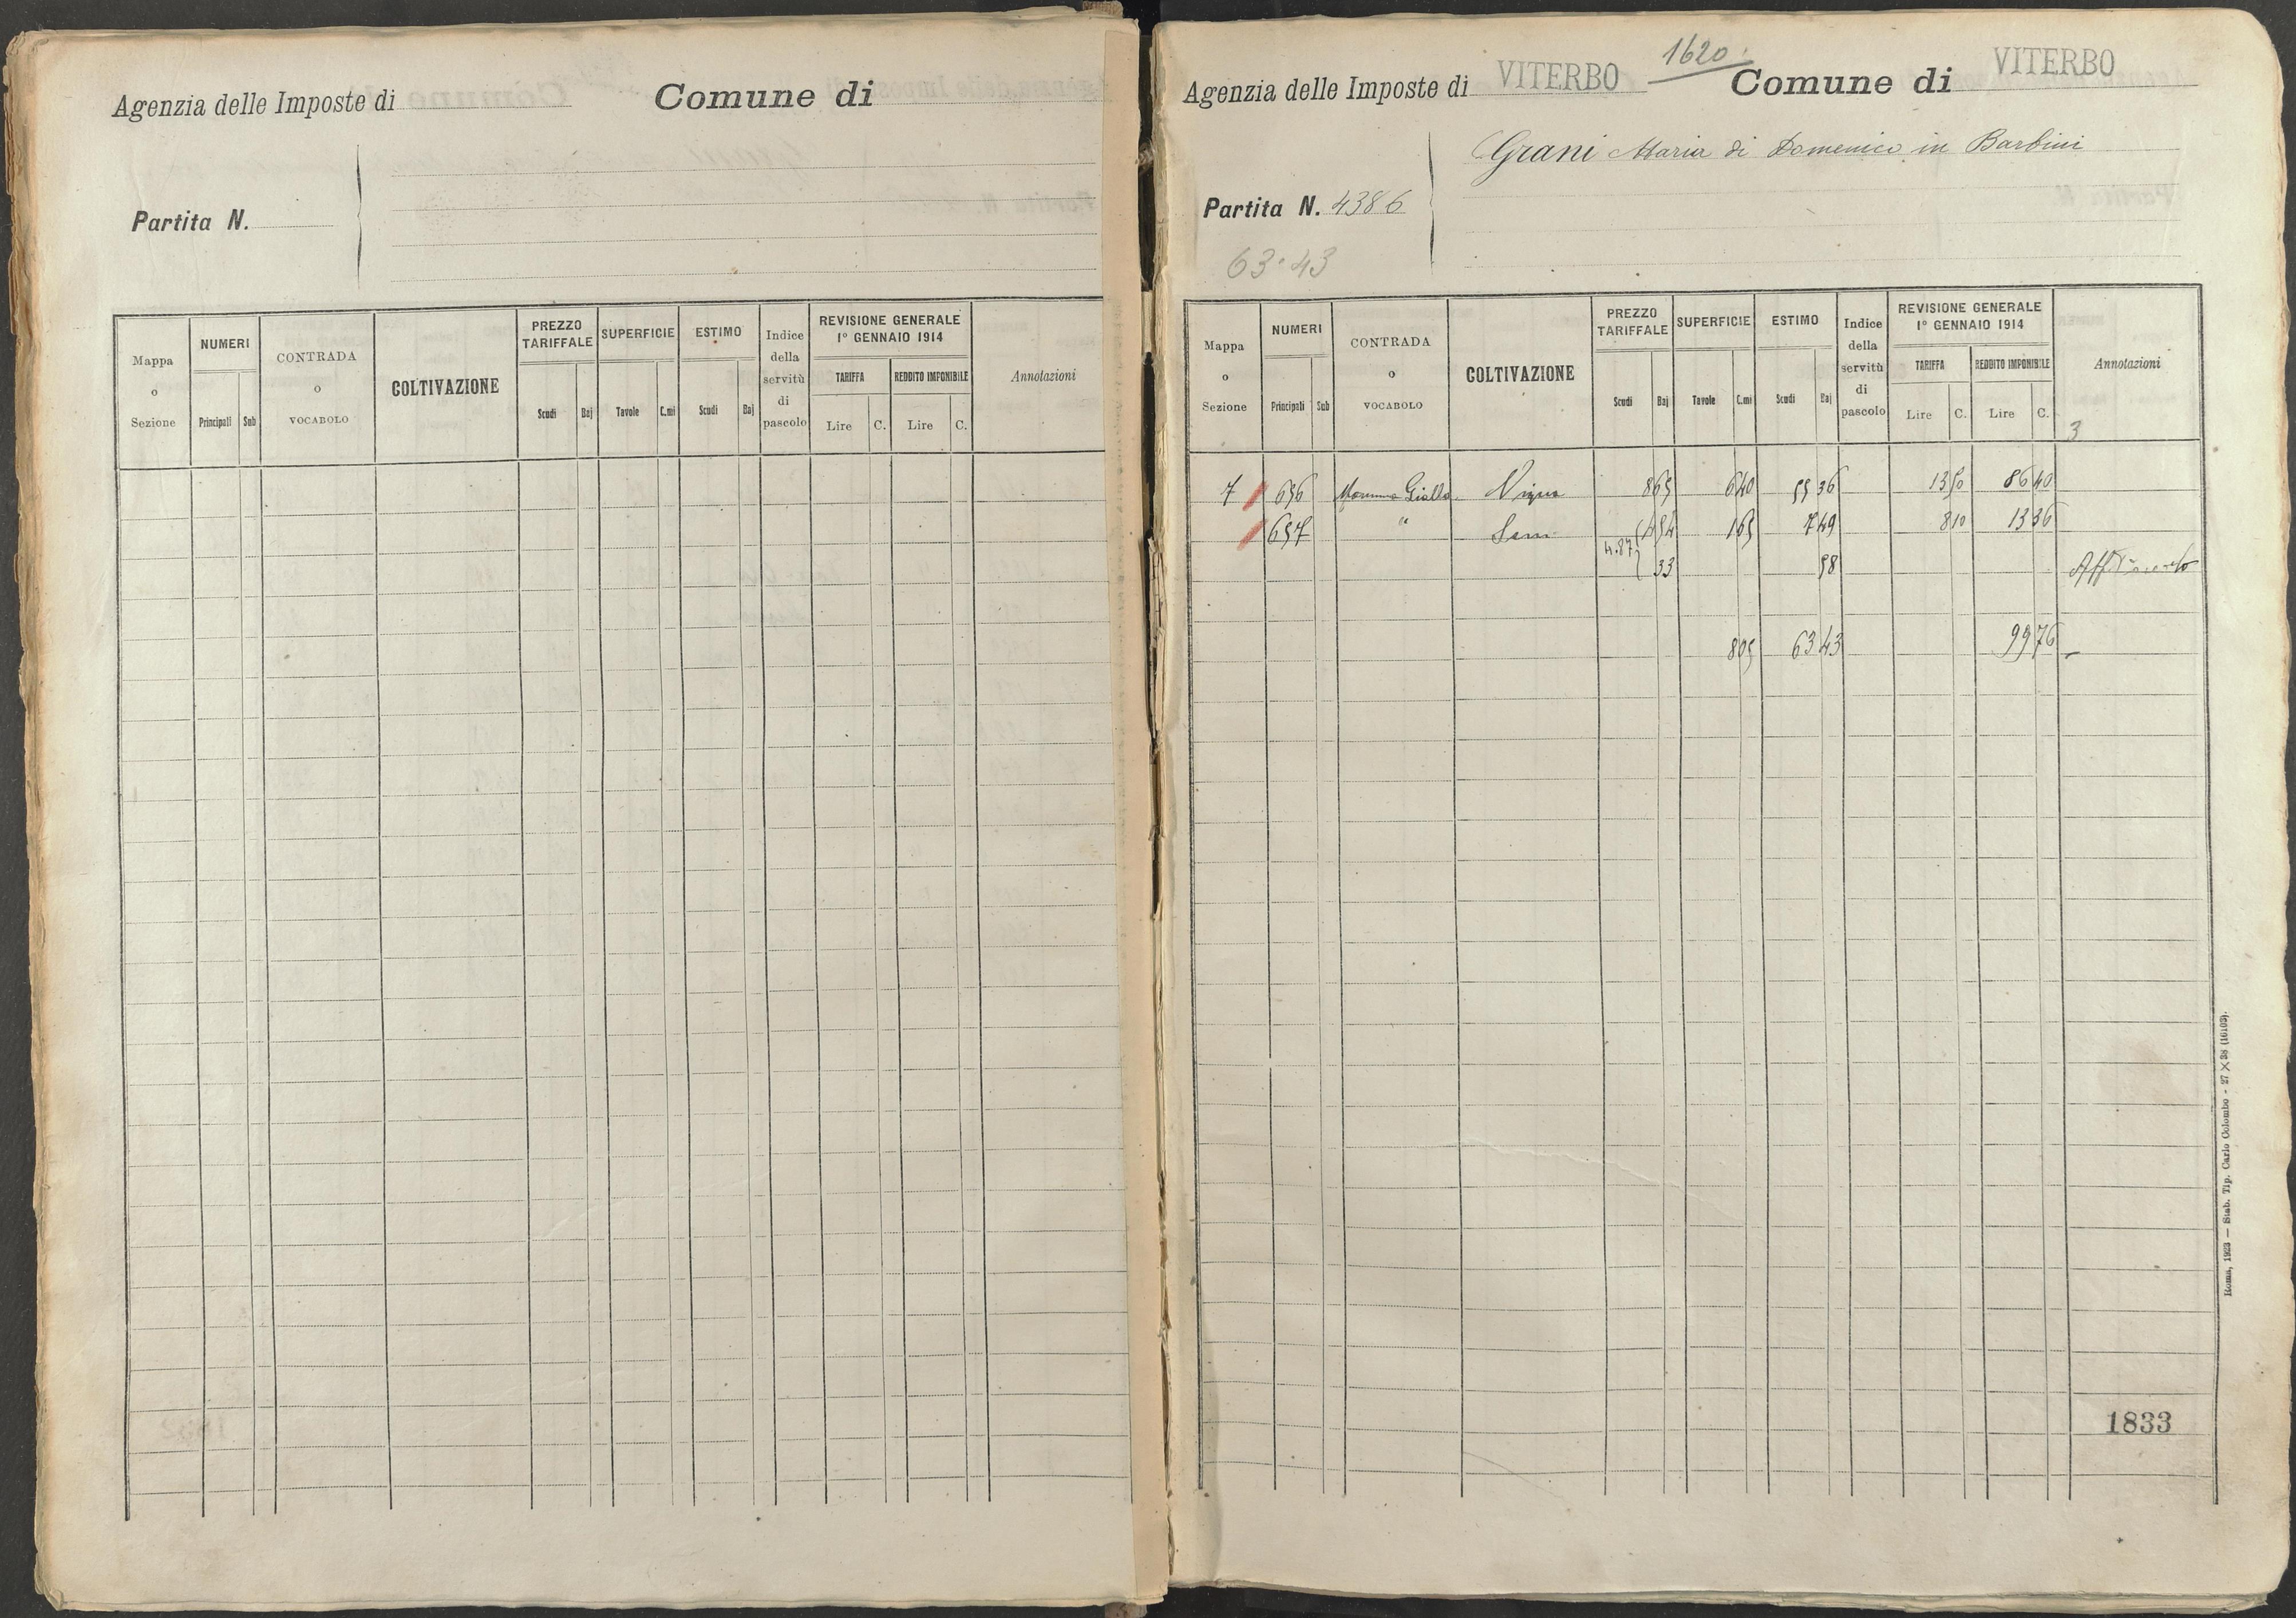 Agenzia delle Imposte di Comune di
Partita N.
Mappa o Sezione NUMERI Principali Sub CONTRADA o VOCABOLO COLTIVAZIONE PREZZO TARIFFALE Scudi Baj SUPERFICIE Tavole C.mi ESTIMO Scudi Baj Indice della servitù di pascolo REVISIONE GENERALE 1° GENNAIO 1914 TARIFFA Lire C. REDDITO IMPONIBILE Lire C. Annotazioni
1620
Agenzia delle Imposte di VITERBO Comune di VITERBO
Grani Maria di Domenico in Barbini
Partita N. 4386
63.43
Mappa o Sezione NUMERI Principali Sub CONTRADA o VOCABOLO COLTIVAZIONE PREZZO TARIFFALE Scudi Baj SUPERFICIE Tavole C.mi ESTIMO Scudi Baj Indice della servitù di pascolo REVISIONE GENERALE 1° GENNAIO 1914 TARIFFA Lire C. REDDITO IMPONIBILE Lire C. Annotazioni
3
7 656 Gialla Vigna 8 65 6 40 55 36 13 50 86 40
657 " Sem 4 54 1 65 7 49 8 10 13 36
4.87 33 58
8 05 63 43 99 76
1833
Roma, 1923 — Stab. Tip. Carlo Colombo - 27 × 38 (16103).